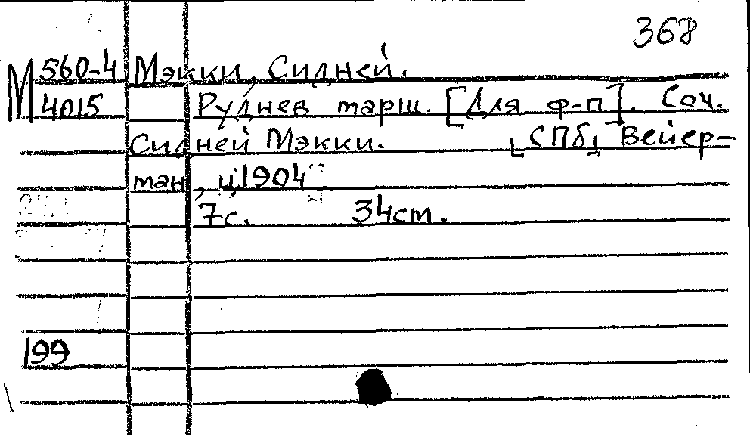 368
М 560-4 Мэкки, Сидней.
4015 Руднев марш. [Для ф-п]. Соч.
Сидней Мэкки. [СПб] Вейер-
ман, ц.1904
7с. 34см.
199